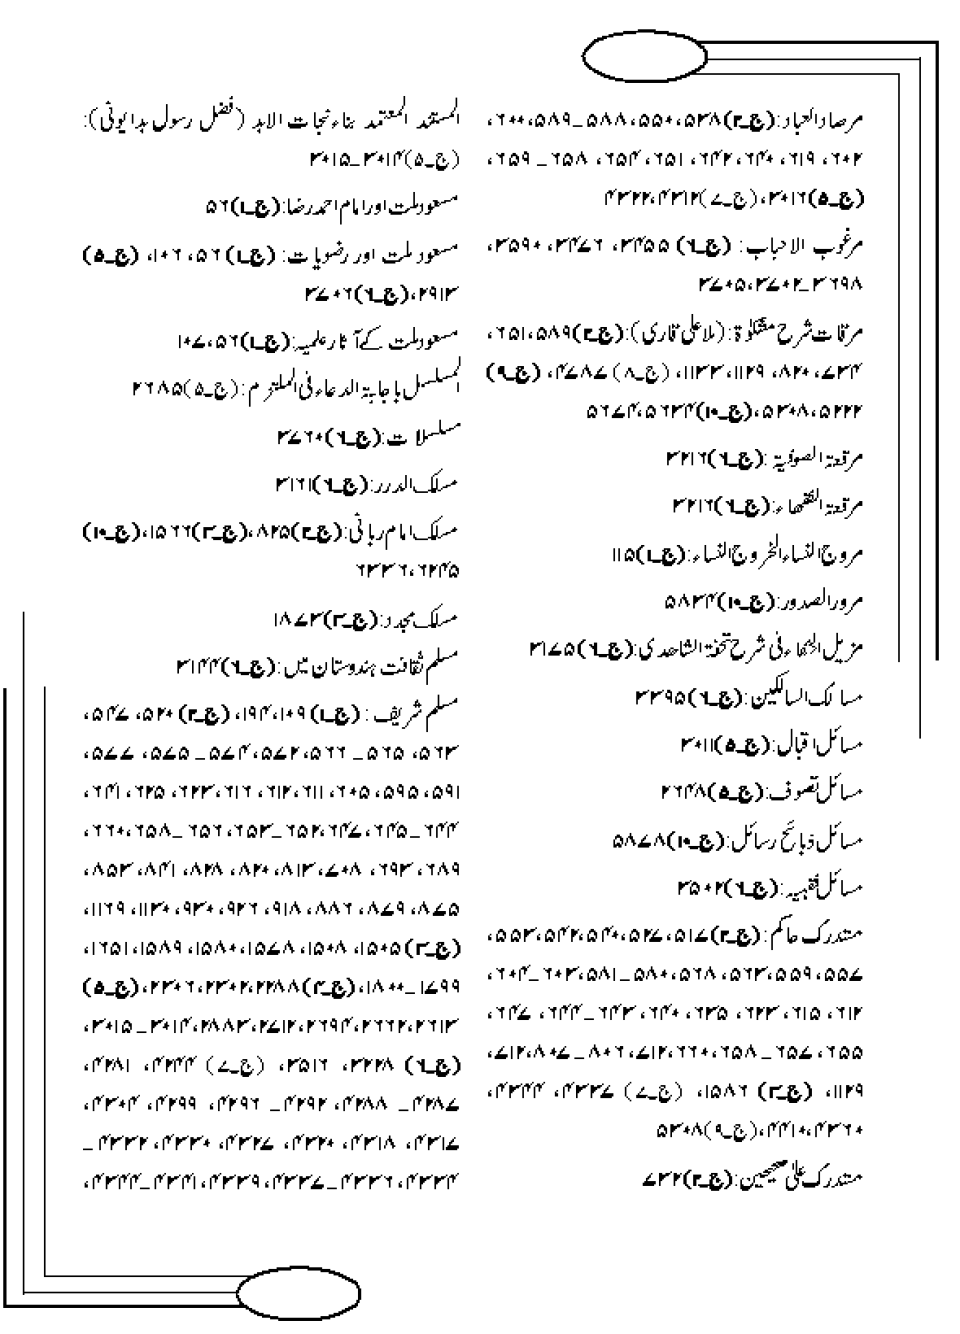 مرصادالعباد:(ج_۲)۵۳۸، ۵۵۰، ۵۸۸_۵۸۹، ۶۰۰،
۶۰۲، ۶۱۹، ۶۴۰، ۶۴۲، ۶۵۱، ۶۵۴، ۶۵۸_ ۶۵۹،
(ج_۵)۳۰۱۶، (ج_۷)۴۳۱۲، ۴۳۲۲
مرغوب الاحباب: (ج_۶) ۳۴۵۵، ۳۴۷۶، ۳۵۹۰،
۳۶۹۸_۳۷۰۲، ۳۷۰۵
مرقات شرح مشکوٰۃ:(ملا علی قاری):(ج_۲)۵۸۹، ۶۵۱،
۷۳۴، ۸۲۰، ۱۱۲۹، ۱۱۳۳، (ج_۸)۴۷۸۷، (ج_۹)
۵۲۲۲، ۵۳۰۸، (ج_۱۰)۵۶۳۴، ۵۶۷۴
مرقعۃ الصوفیۃ :(ج_۶)۳۲۱۶
مرقعۃ الفقھاء:(ج_۶)۳۲۱۶
مروج النساء الخروج النساء:(ج_۱)۱۱۵
مرورالصدور:(ج_۱۰)۵۸۳۴
مزیل الخفاء فی شرح تحفۃ الشاھدی:(ج_۶)۳۱۷۵
مسالک السالکین:(ج_۶)۳۳۹۵
مسائل اقبال:(ج_۵)۳۰۱۱
مسائل تصوف:(ج_۵)۲۶۴۸
مسائل ذبائح رسائل:(ج_۱۰)۵۸۷۸
مسائل فقہیہ:(ج_۶)۳۵۰۲
مستدرک حاکم:(ج_۲)۵۱۷، ۵۲۷، ۵۴۰، ۵۴۲، ۵۵۳،
۵۵۷، ۵۵۹، ۵۶۳، ۵۶۸، ۵۸۰_۵۸۱، ۶۰۳_۶۰۴،
۶۱۲، ۶۱۵، ۶۲۳، ۶۳۵، ۶۴۰، ۶۴۳_۶۴۴، ۶۴۷،
۶۵۵، ۶۵۷_ ۶۵۸، ۶۶۰، ۷۱۲، ۷۰۶_ ۷۰۸، ۷۱۲،
۱۱۲۹، (ج_۳) ۱۵۸۶، (ج_۷) ۴۳۳۷، ۴۳۴۴،
۴۳۶۰، ۴۴۱۰، (ج_۹)۵۳۰۸
مستدرک علیٰ صحیحین:(ج_۲)۷۳۲
المستند المعتمد بناء نجات الابد (فضل رسول بدایونی):
(ج_۵)۳۰۱۴_۳۰۱۵
مسعودملت اور امام احمدرضا:(ج_۱)۵۶
مسعود ملت اور رضویات: (ج_۱)۵۶، ۱۰۶، (ج_۵)
۲۹۱۳، (ج_۶)۳۷۰۶
مسعودملت کے آثار علمیہ:(ج_۱)۵۶، ۱۰۷
المسلسل باجابۃ الدعاء فی الملتزم:(ج_۵)۲۶۸۵
مسلسلات:(ج_۶)۳۷۶۰
مسلک الدرر:(ج_۶)۳۱۶۱
مسلک امام ربانی:(ج_۲)۸۲۵، (ج_۳)۱۵۶۶، (ج_۱۰)
۶۲۴۵، ۶۳۳۶
مسلک مجدد:(ج_۳)۱۸۷۳
مسلم ثقافت ہندوستان میں:(ج_۶)۳۱۴۴
مسلم شریف: (ج_۱)۱۰۹، ۱۹۴، (ج_۲)۵۲۰، ۵۴۷،
۵۶۳، ۵۶۵_ ۵۶۶، ۵۷۲، ۵۷۴_ ۵۷۵، ۵۷۷،
۵۹۱، ۵۹۵، ۶۰۵، ۶۱۱، ۶۱۲، ۶۱۶، ۶۲۳، ۶۲۵، ۶۴۱،
۶۴۴_۶۴۵، ۶۴۷، ۶۵۲_۶۵۳، ۶۵۶_۶۵۸، ۶۶۰،
۶۸۹، ۶۹۳، ۷۰۸، ۸۱۳، ۸۲۰، ۸۲۸، ۸۴۱، ۸۵۳،
۸۷۵، ۸۷۹، ۸۸۶، ۹۱۸، ۹۲۶، ۹۳۰، ۱۱۳۰، ۱۱۲۹،
(ج_۳)۱۵۰۵، ۱۵۰۸، ۱۵۷۸، ۱۵۸۰، ۱۵۸۹، ۱۶۵۱،
۱۷۹۹_۱۸۰۰، (ج_۴)۲۲۸۸، ۲۳۰۲، ۲۳۰۶، (ج_۵)
۲۶۱۳، ۲۶۶۲، ۲۶۹۴، ۲۷۱۲، ۲۸۸۳، ۳۰۱۴_۳۰۱۵،
(ج_۶) ۳۲۲۸، ۳۵۱۶، (ج_۷) ۴۲۴۴، ۴۲۸۱،
۴۲۸۷_ ۴۲۸۸، ۴۲۹۲_ ۴۲۹۶، ۴۲۹۹، ۴۳۰۴،
۴۳۱۷، ۴۳۱۸، ۴۳۲۰، ۴۳۲۷، ۴۳۳۰، ۴۳۳۲_
۴۳۳۴، ۴۳۳۶_۴۳۳۷، ۴۳۳۹، ۴۳۴۱_۴۳۴۴،